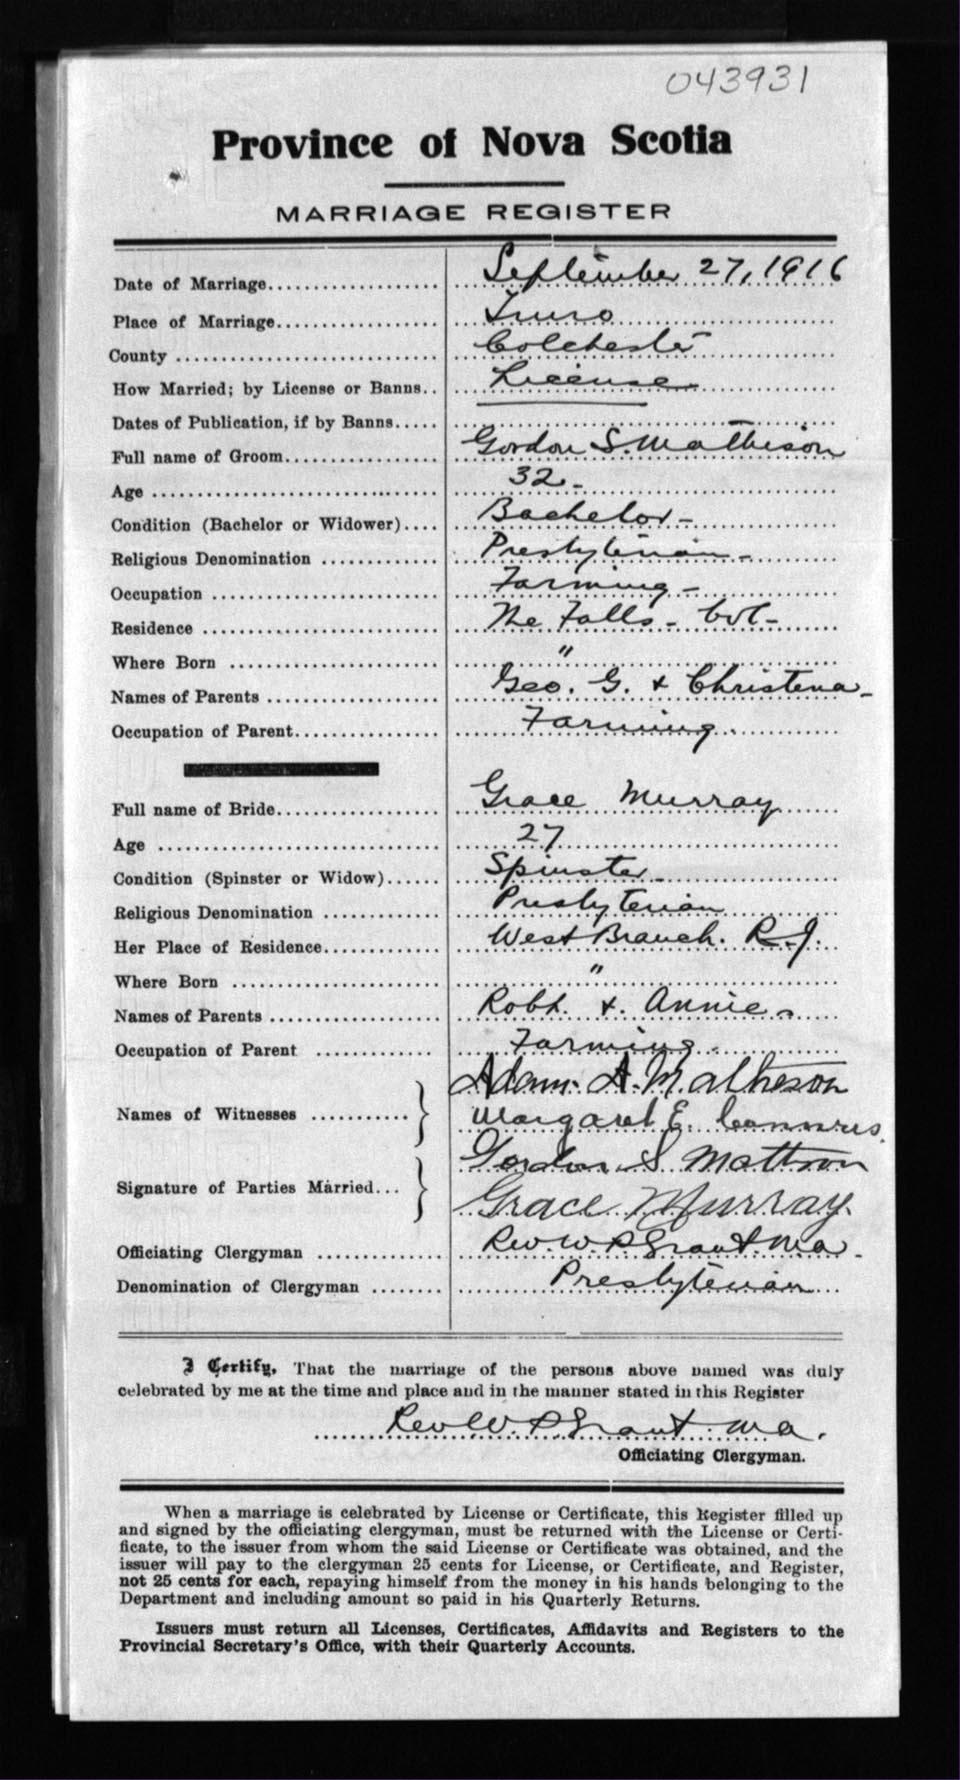 043931
Province of Nova Scotia
MARRIAGE REGISTER
Date of Marriage................... September 27, 1916
Place of Marriage.................. Truro
County ........................... Colchester
How Married; by License or Banns.. License
Dates of Publication, if by Banns.....
Full name of Groom................. Gordon S. Matheson
Age ............................. 32 -
Condition (Bachelor or Widower).... Bachelor -
Religious Denomination ............ Presbyterian -
Occupation ........................ Farming -
Residence ......................... The Falls - Col -
Where Born ...................... "
Names of Parents .................. Geo. G. & Christena -
Occupation of Parent................ Farming
Full name of Bride.................. Grace Murray
Age ............................. 27
Condition (Spinster or Widow)...... Spinster
Religious Denomination ............ Presbyterian
Her Place of Residence............. West Branch. R.J.
Where Born ...................... "
Names of Parents .................. Robt. & Annie -
Occupation of Parent ............. Farming -
Names of Witnesses ........... } Adam A. Matheson
Margaret E.
Signature of Parties Married... } Gordon S Matheson
Grace Murray.
Officiating Clergyman ............. Rev. W. P. Grant. M.A -
Denomination of Clergyman ........ Presbyterian
I Certify, That the marriage of the persons above named was duly
celebrated by me at the time and place and in the manner stated in this Register
Rev W. P. Grant. M.A.
Officiating Clergyman.
When a marriage is celebrated by License or Certificate, this Register filled up
and signed by the officiating clergyman, must be returned with the License or Certi-
ficate, to the issuer from whom the said License or Certificate was obtained, and the
issuer will pay to the clergyman 25 cents for License, or Certificate, and Register,
not 25 cents for each, repaying himself from the money in his hands belonging to the
Department and including amount so paid in his Quarterly Returns.
Issuers must return all Licenses, Certificates, Affidavits and Registers to the
Provincial Secretary's Office, with their Quarterly Accounts.